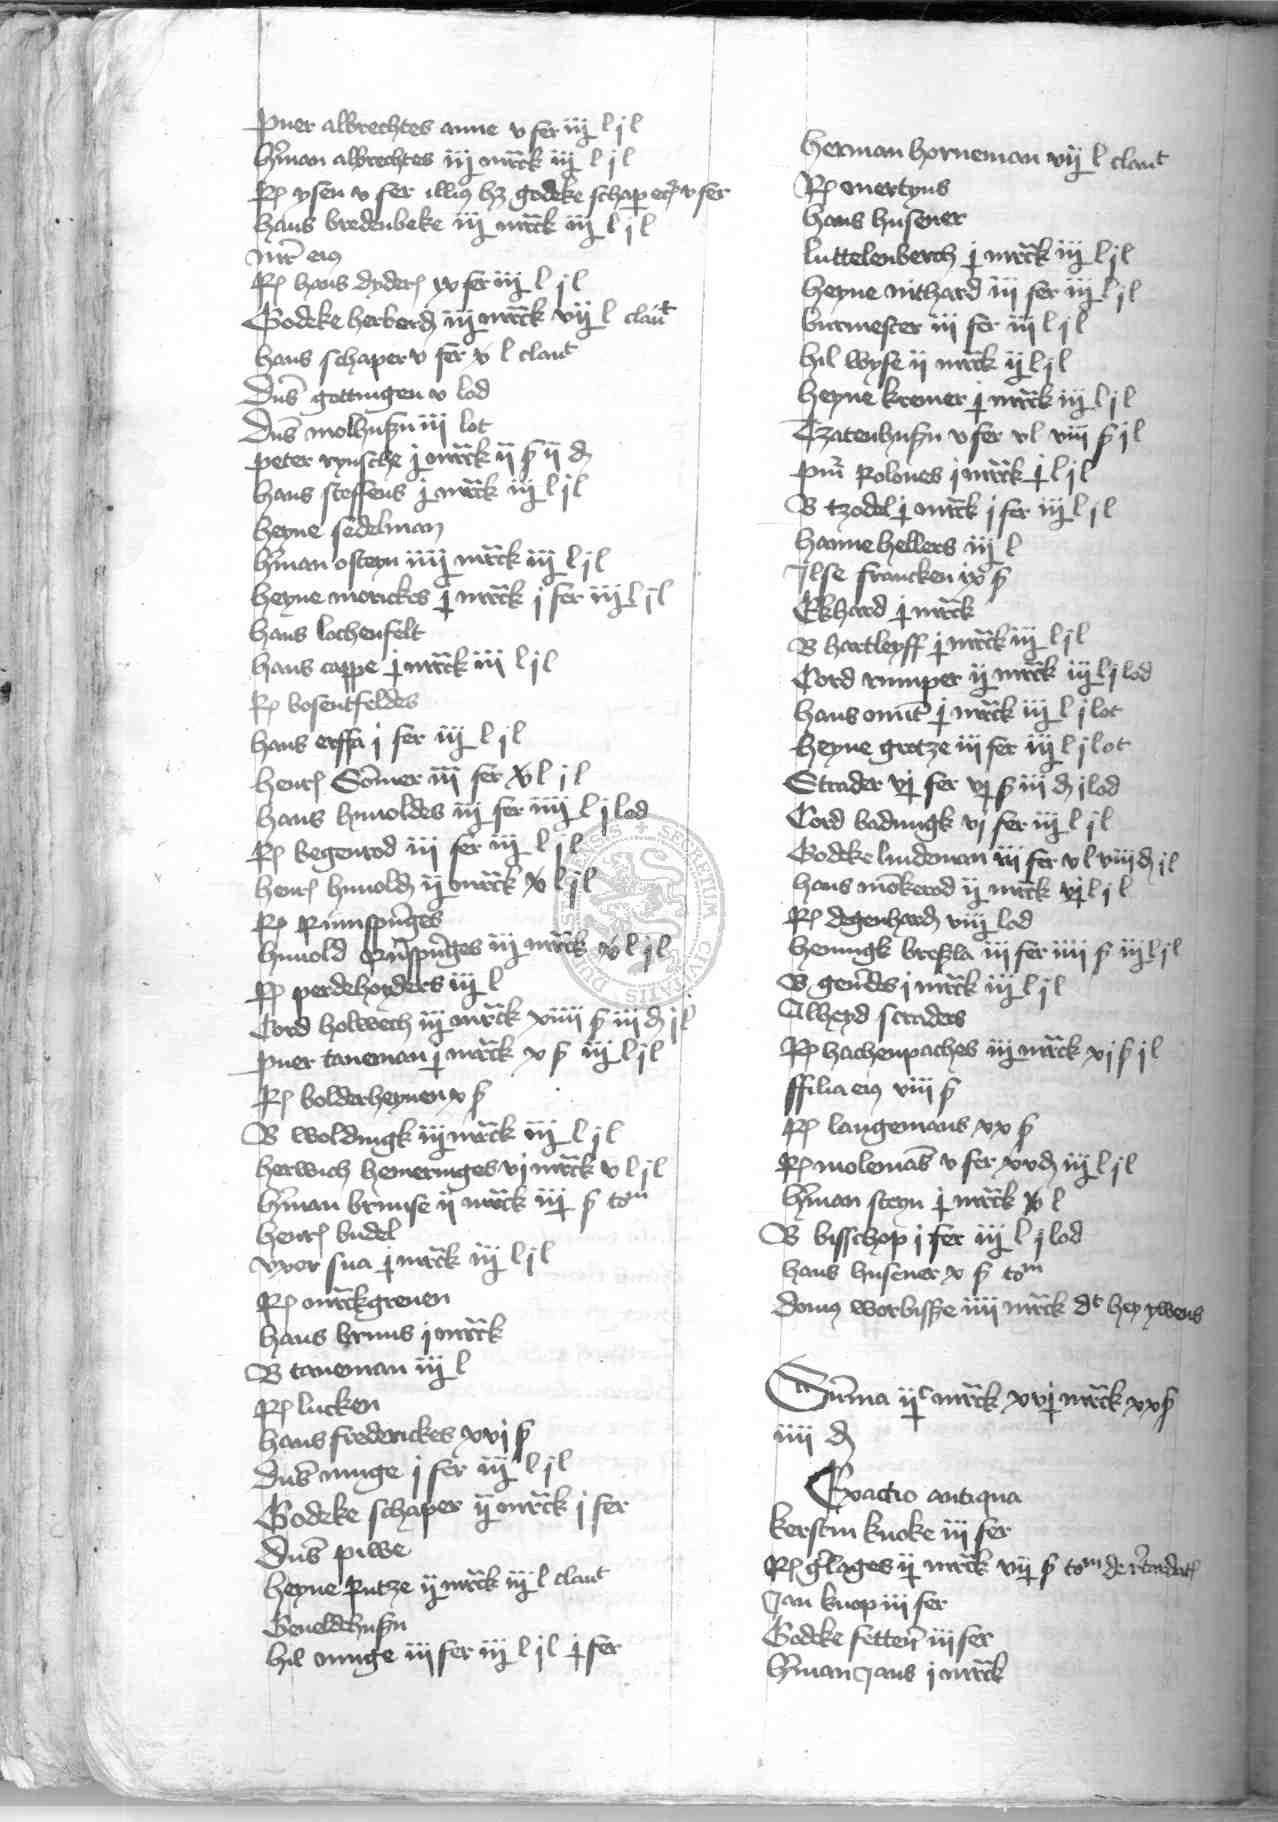 Puer albrechtes anne v fer iij l j l
h'man albrechtes iij marck iij l j l
Rͥ ysen v fer illiꝰ hʒ godeke schaper v fer
hans bredenbeke iij marck iij l j l
mr̄ eiꝰ
R hans dyder xv fer iij l j l
Godeke herberd iij marck vij l claut
hans schaper v fer v l claut
Dns̄ gottingen v lod
Dns̄ molhußn iij lot
peter rynsche j marck ij ß ij d
hans steffens j marck iij l j l
heyne sedelman
h'man osteyn iiij marck iij l j l
heyne morickes j marck j fer iij l j l
hans lochenfelt
hans cappe j marck iij l j l
R bosentfeldes
hans erffa j fer iij l j l
henr Som̄er iij fer v l j l
hans hunoldes iij fer iiij l j lod
R begenrod iij fer iij l j l
henr hunold ij marck v l j l
R Rumspringes
hunold Rumspringes iij marck v l j l
R perdehorders iij l
Cord holwech iij marck xiiij ß iij d j l
puer taneman j marck x ß iij l j l
R bolderheynen x ß
B woldingk iij marck iij l j l
herwich hemeringes vj marck v l j l
h'man brunse ij marck iij ß tom
henr budel
vxor sua j marck iij l j l
R marckgreuen
hans bruns j marck
B taneman iij l
R lucken
hans frederickes xvj ß
Dns̄ nunge j fer iij l j l
Godeke schaper ij marck j fer
Dns̄ piwe
heyne putze ij marck iij l claut
Geueldehußn
hil nunge iij fer iij l j l j fer
herman horneman vij l claut
R mertyns
hans husener
luttelenberch j marck iij l j l
heyne nithard iij fer iij l j l
burmester iij fer iij l j l
hil wyse ij marck ij l j l
heyne kremer j marck iij l j l
Tzatenhußn v fer v l viij ß j l
pm̄ polones j marck j l j l
B tzodel j marck j fer iij l j l
hanne hellers iij l
Ilse francken ix ß
Ekhard j marck
B hartleyff j marck iij l j l
Cord rumper ij marck iij l j lod
hans omut j marck iij l j lot
heyne grotze iij fer iij l j lot
Strader vj fer vj ß iij d j lod
Cord badungk vj fer iij l j l
Godeke lindeman iij fer v l viij d j l
hans mōkerod ij marck vj l j l
R degenhard viij lod
henningk breßla iij fer iiij ß iij l j l
B gerdes j marck iij l j l
Alheyd straders
R hachenpaches iij marck xj ß j l
ffilia eiꝰ viij ß
R langemans xx ß
R molemās v fer xv d iij l j l
h'man steyn j marck v l
B bisschop j fer iij l j lod
hans husener x ß tom
domꝰ worbisse iiij marck dt hey ywens
Sum̄a ijc marck xvj marck xx ß
iiij d
Exactio antiqua
kerstin knoke iij fer
R g'lages ij marck vij ß tom de r'tardat
Jan knop iij fer
Godeke fetten iij fer
h'man Jans j marck